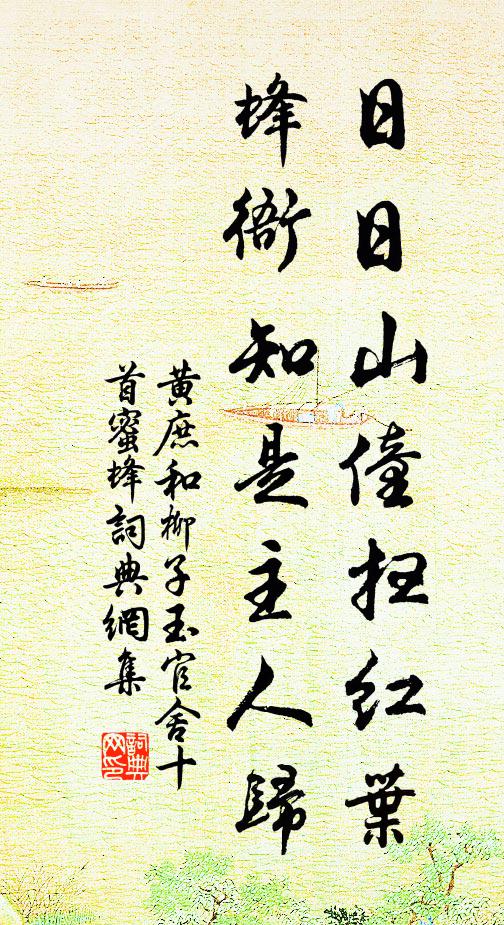 日日山僮扭紅葉
蜂衙知是主人歸
黃庶和柳子玉官舍十
首蜜蜂詞典網集
詞典
网印